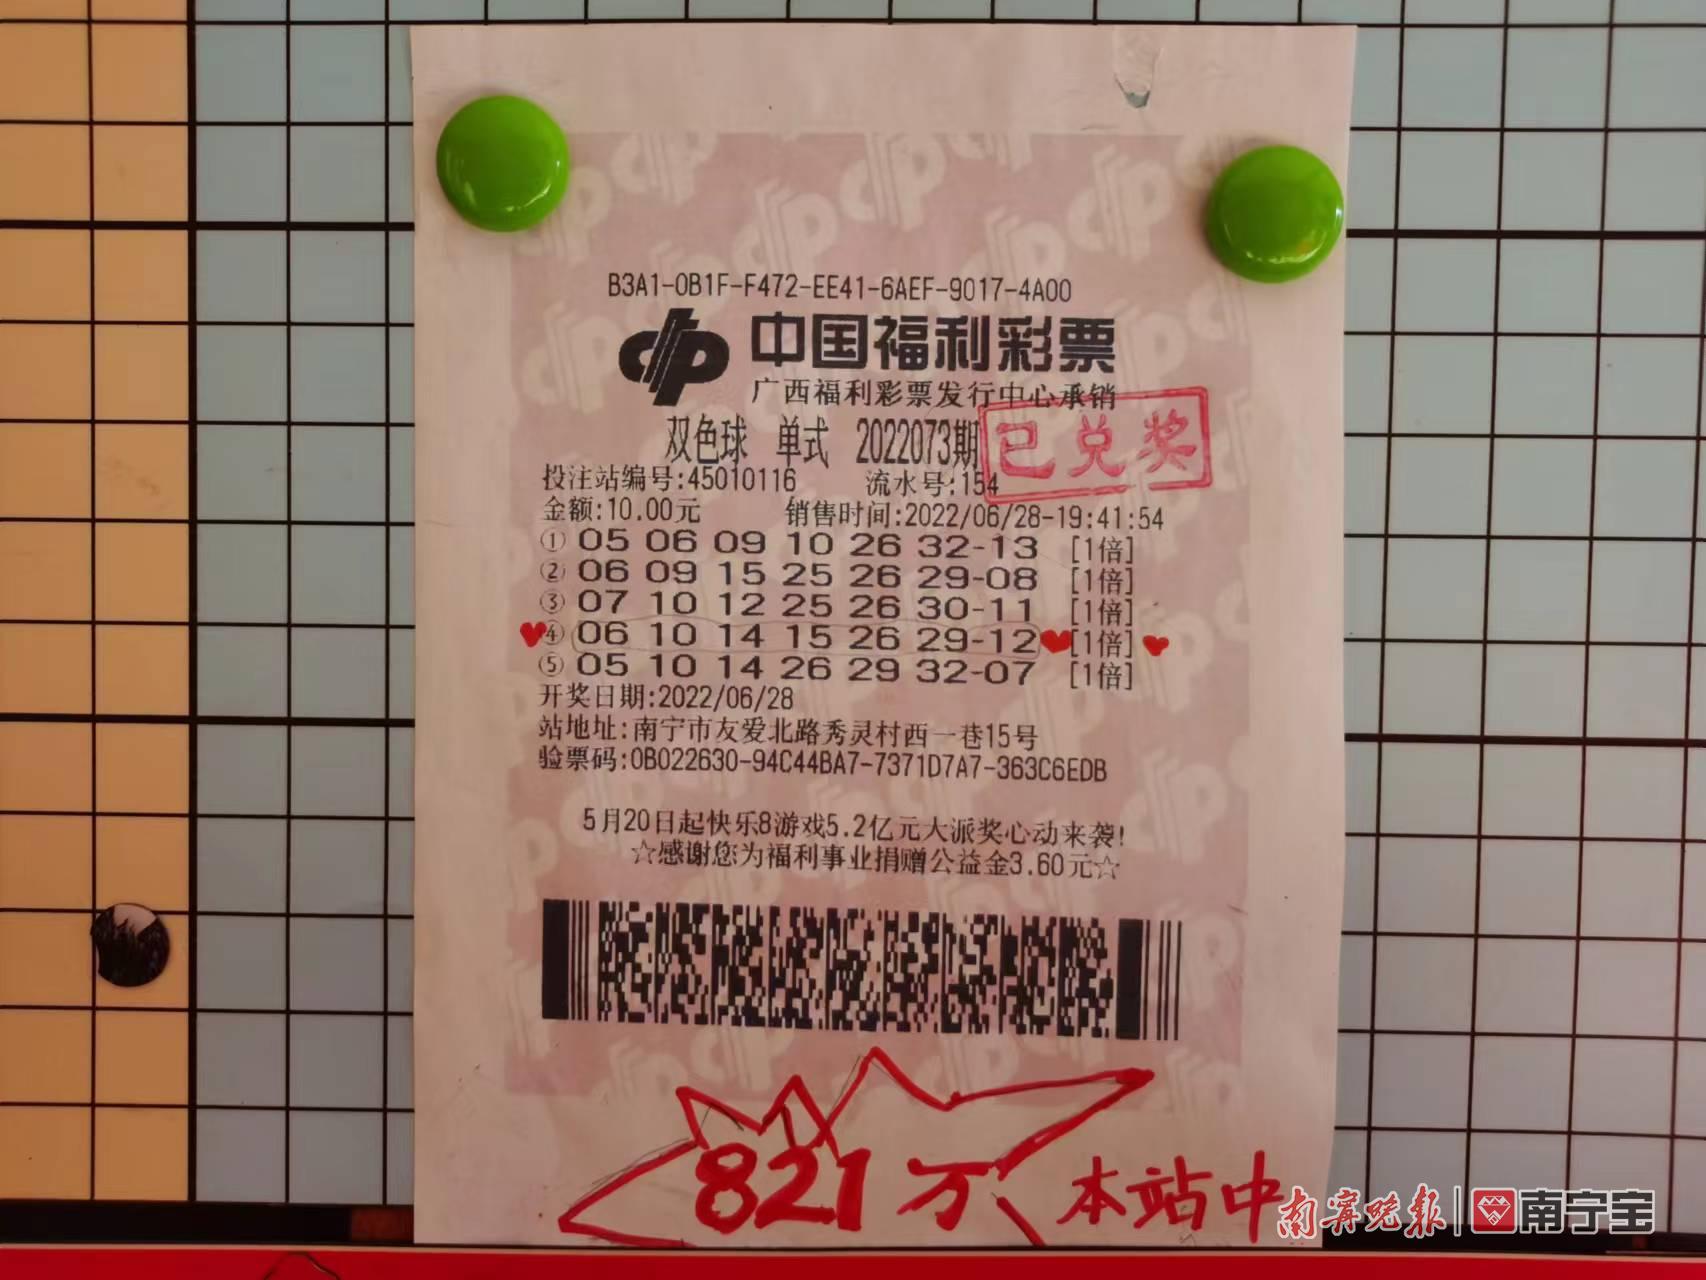 B3A1-0B1F-F472-EE41-6AEF-9017-4A00
中国福利彩票
广西福利彩票发行中心承销
双色球 单式 2022073期
已兑奖
投注站编号:45010116 流水号:154
金额:10.00元 销售时间:2022/06/28-19:41:54
① 05 06 09 10 26 32-13 [1倍]
② 06 09 15 25 26 29-08 [1倍]
③ 07 10 12 25 26 30-11 [1倍]
④ 06 10 14 15 26 29-12 [1倍]
⑤ 05 10 14 26 29 32-07 [1倍]
开奖日期:2022/06/28
站地址:南宁市友爱北路秀灵村西一巷15号
验票码:0B022630-94C44BA7-7371D7A7-363C6EDB
5月20日起快乐8游戏5.2亿元大派奖心动来袭!
☆感谢您为福利事业捐赠公益金3.60元☆
821万 本站中
南宁晚报 | 南宁宝